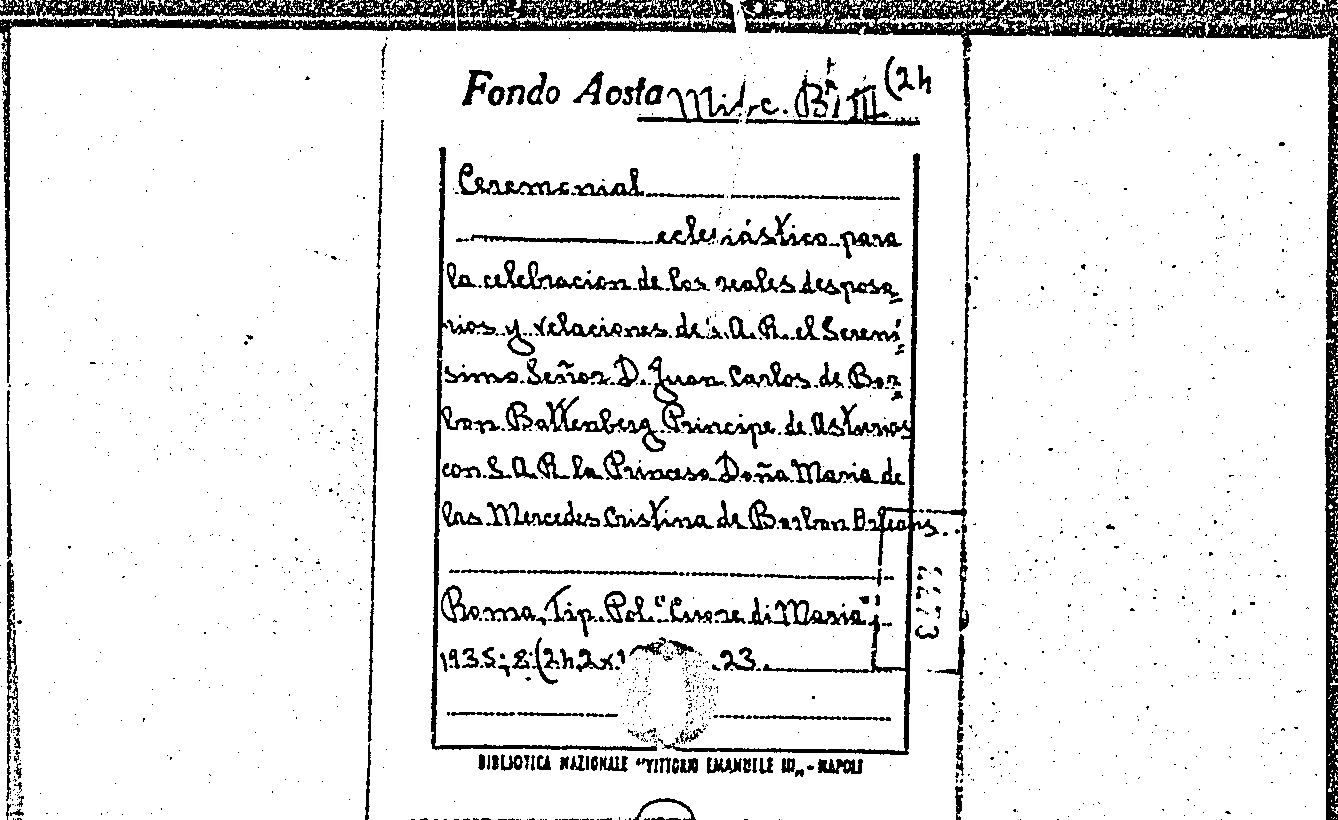 Fondo Aosta Misc. B. III (24
Ceremonial
eclesiástico para
la celebracion de los reales desposo
rios y velaciones de s. A. R. el Sereni
simo Señor D. Juan Carlos de Bor
bon Battenberg Principe de Asturias
con S. A. R. la Princesa Doña Maria de
las Mercedes Cristina de Borbon Orleans.
Roma, Tip. Pol. "Cuore di Maria",
1935; 8:(24,2x1 .23.
BIBLIOTECA NAZIONALE "VITTORIO EMANUELE III„ - NAPOLI